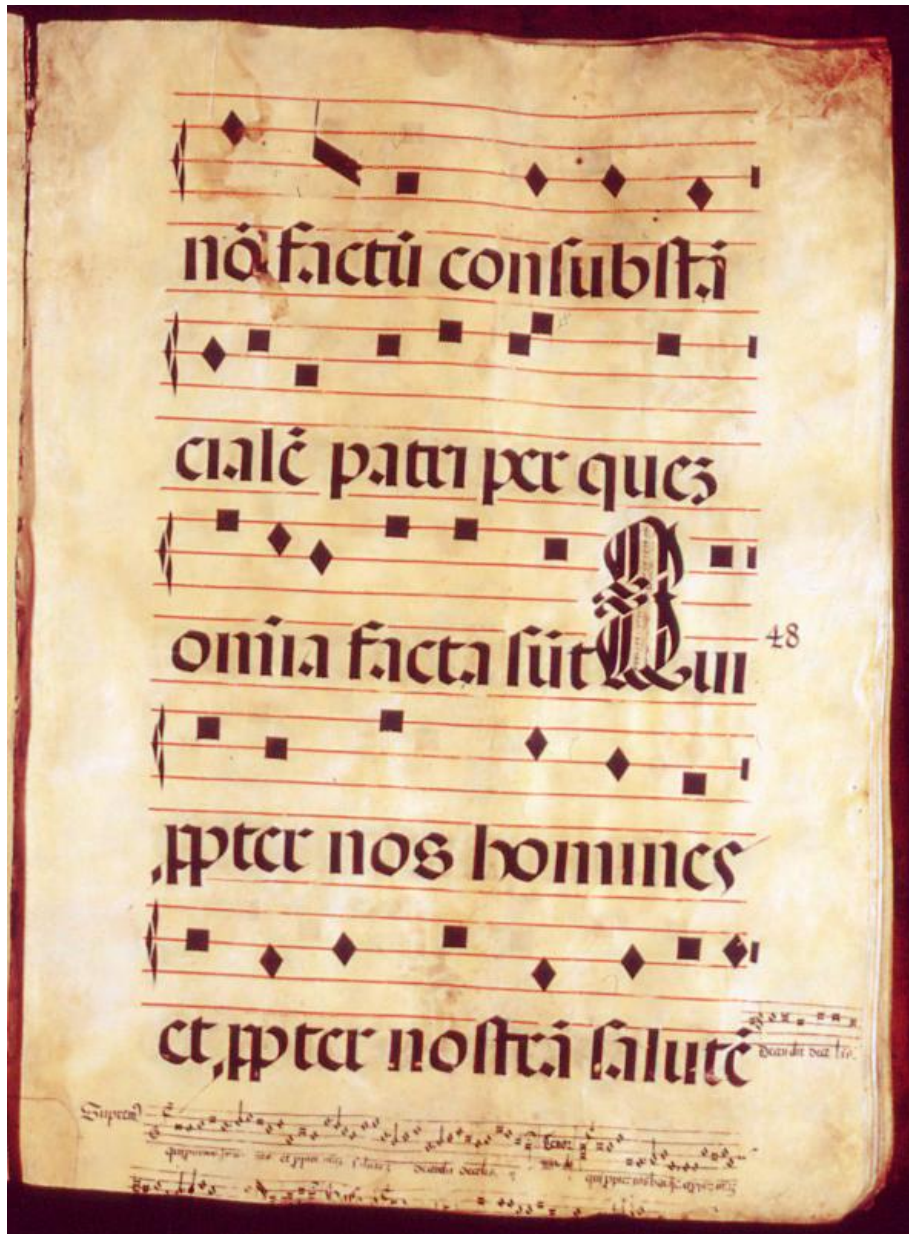 nō factū consubstā
cialē patri per quez
om̄ia facta sūt Qui
48
ꝓpter nos homines
et ꝓpter nostrā salutē
Tenor